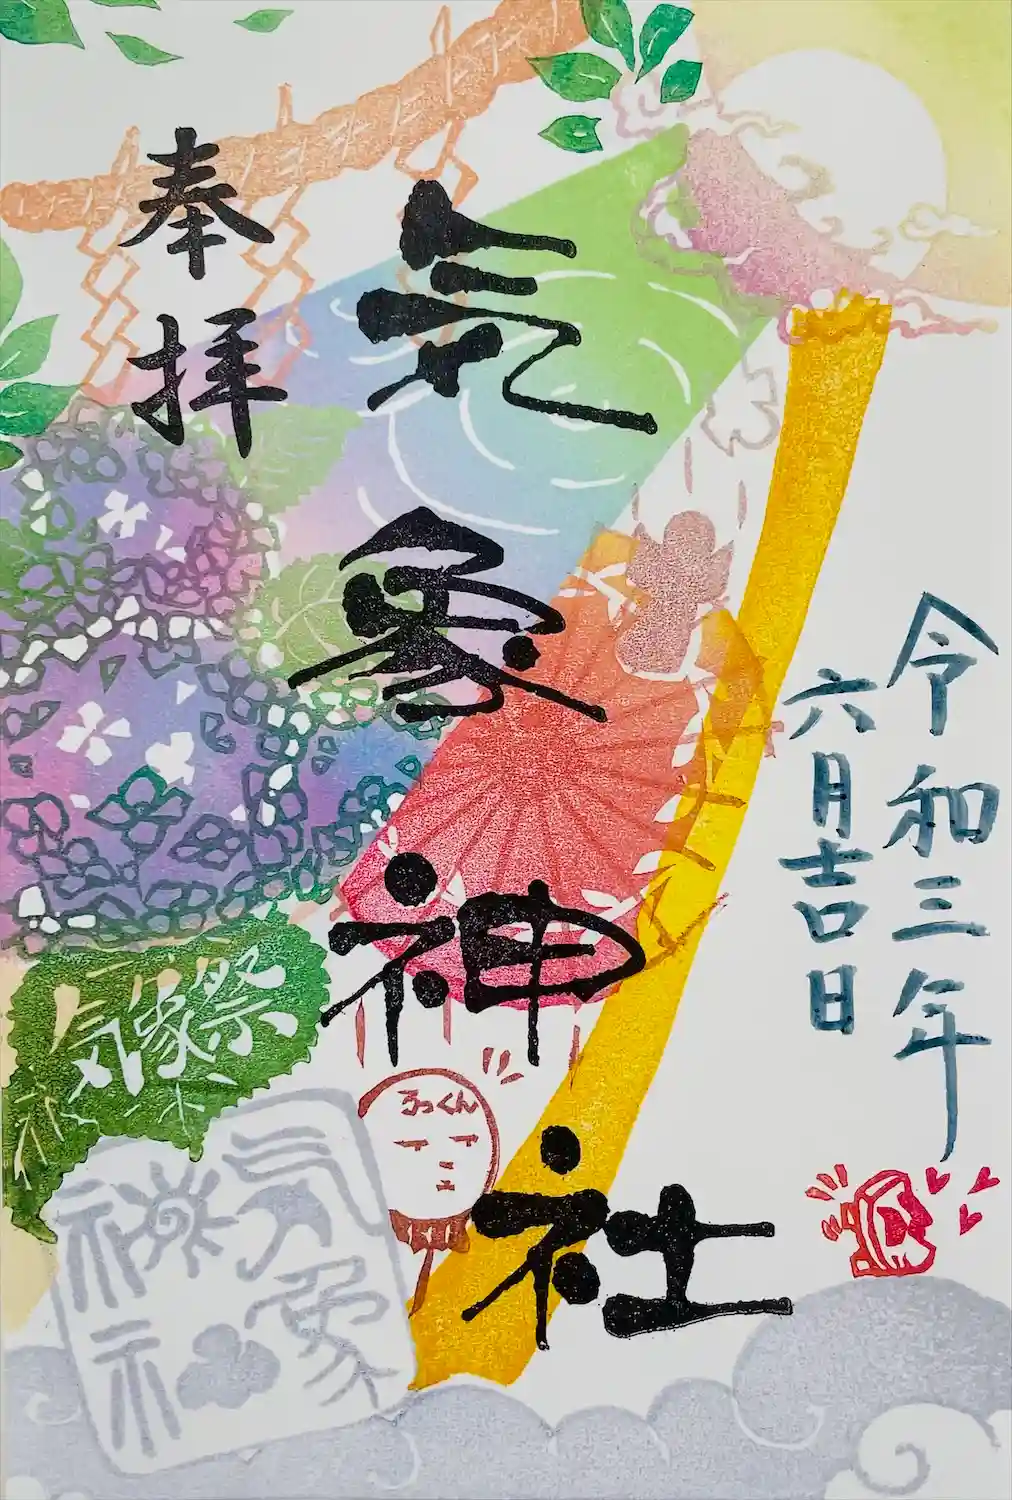 令和三年
六月吉日
気象神社
奉拝
気像祭
るっくん
気象
神社